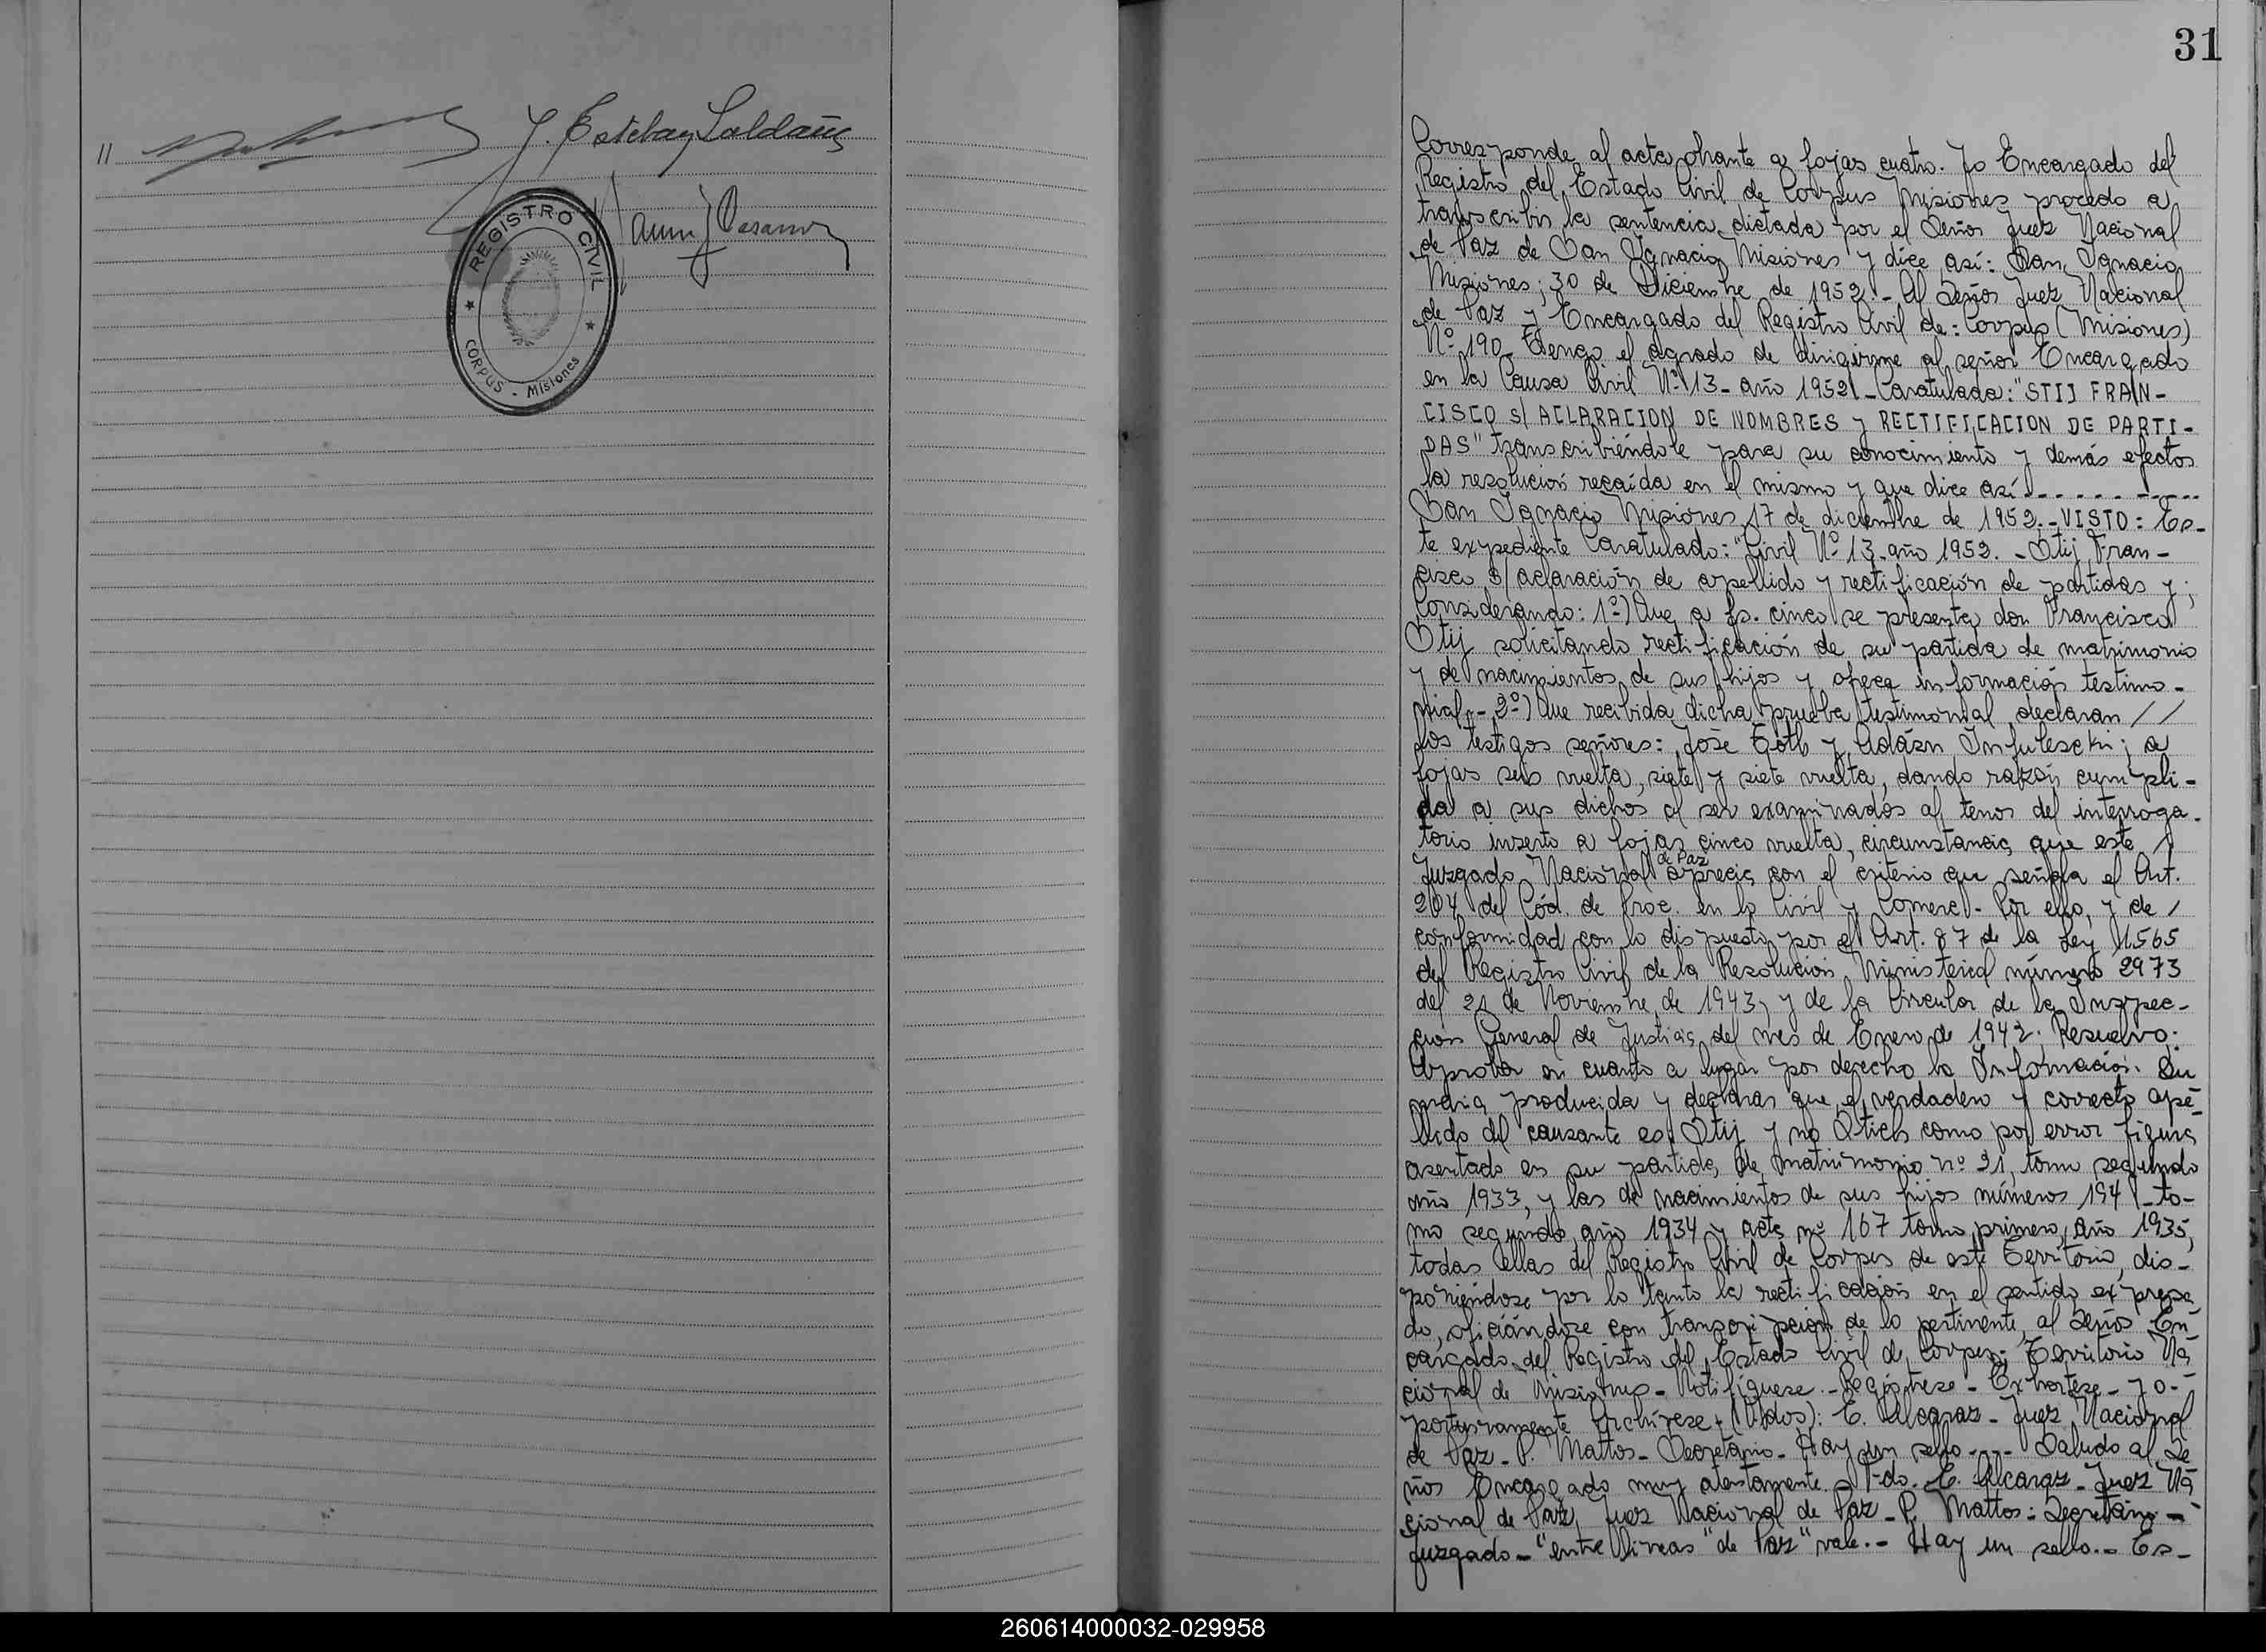 11
J. Esteban Saldaña
REGISTRO CIVIL
CORPUS - Misiones
31
Corresponde al acta obrante a fojas cuatro. Yo Encargado del
Registro del Estado Civil de Corpus Misiones procedo a
transcribir la sentencia dictada por el Señor Juez Nacional
de Paz de San Ignacio Misiones y dice así: San Ignacio
Misiones; 30 de Diciembre de 1952.- Al Señor Juez Nacional
de Paz y Encargado del Registro Civil de: Corpus (Misiones)
Nº 190. Tengo el agrado de dirigirme al señor Encargado
en la Causa Civil Nº 13- año 1952- Caratulada: "STIJ FRAN-
CISCO s/ ACLARACION DE NOMBRES y RECTIFICACION DE PARTI-
DAS" transcribiéndole para su conocimiento y demás efectos
la resolución recaída en el mismo y que dice así.- - - - - - - -
San Ignacio Misiones, 17 de diciembre de 1952.- VISTO: Es-
te expediente Caratulado: "Civil Nº 13- año 1952. - Stij Fran-
cisco s/ aclaración de apellido y rectificación de partidas y;
Considerando: 1º) Que a fs. cinco se presenta don Francisco
Stij solicitando rectificación de su partida de matrimonio
y de nacimientos de sus hijos y ofrece información testimo-
nial.- 2º) Que recibida dicha prueba testimonial declaran //
los testigos señores: José y Adán; a
fojas seis vuelta, siete y siete vuelta, dando razón cumpli-
da a sus dichos al ser examinados al tenor del interroga-
torio inserto a fojas cinco vuelta, circunstancia que este /
de Paz
Juzgado Nacional aprecia con el criterio que señala el Art.
204 del Cód. de Proc. en lo Civil y Comerc.- Por ello, y de /
conformidad con lo dispuesto por el Art. 87 de la Ley 1565
del Registro Civil, de la Resolución Ministerial número 2973
del 21 de Noviembre de 1943, y de la Circular de la Inspec-
ción General de Justicia del mes de Enero de 1942; Resuelvo:
Aprobar en cuanto a lugar por derecho la Información Su
maria producida y declarar que el verdadero y correcto ape-
llido del causante es Stij y no Stich como por error figura
asentado en su partida de matrimonio nº 21, tomo segundo
año 1933, y las de nacimientos de sus hijos números 194 - to-
mo segundo año 1934 y acta nº 167 tomo primero, año 1935,
todas ellas del Registro Civil de Corpus de este Territorio, dis-
poniéndose por lo tanto la rectificación en el sentido expresa
do, oficiándose con transcripción de lo pertinente al Señor En-
cargado del Registro del Estado Civil de Corpus; Territorio Na
cional de Misiones- Notifíquese.- Regístrese - Exhórtese - y o-
portunamente Archívese- (Fdos): E. Alcaraz - Juez Nacional
de Paz - P. Mattos - Secretario - Hay un sello - - - Saludo al Se
ñor Encargado muy atentamente. Fdo. E. Alcaraz - Juez Na
cional de Paz, Juez Nacional de Paz - P. Mattos: Secretario -
Juzgado - "entre líneas "de Paz" vale.- Hay un sello.- Es-
260614000032-029958